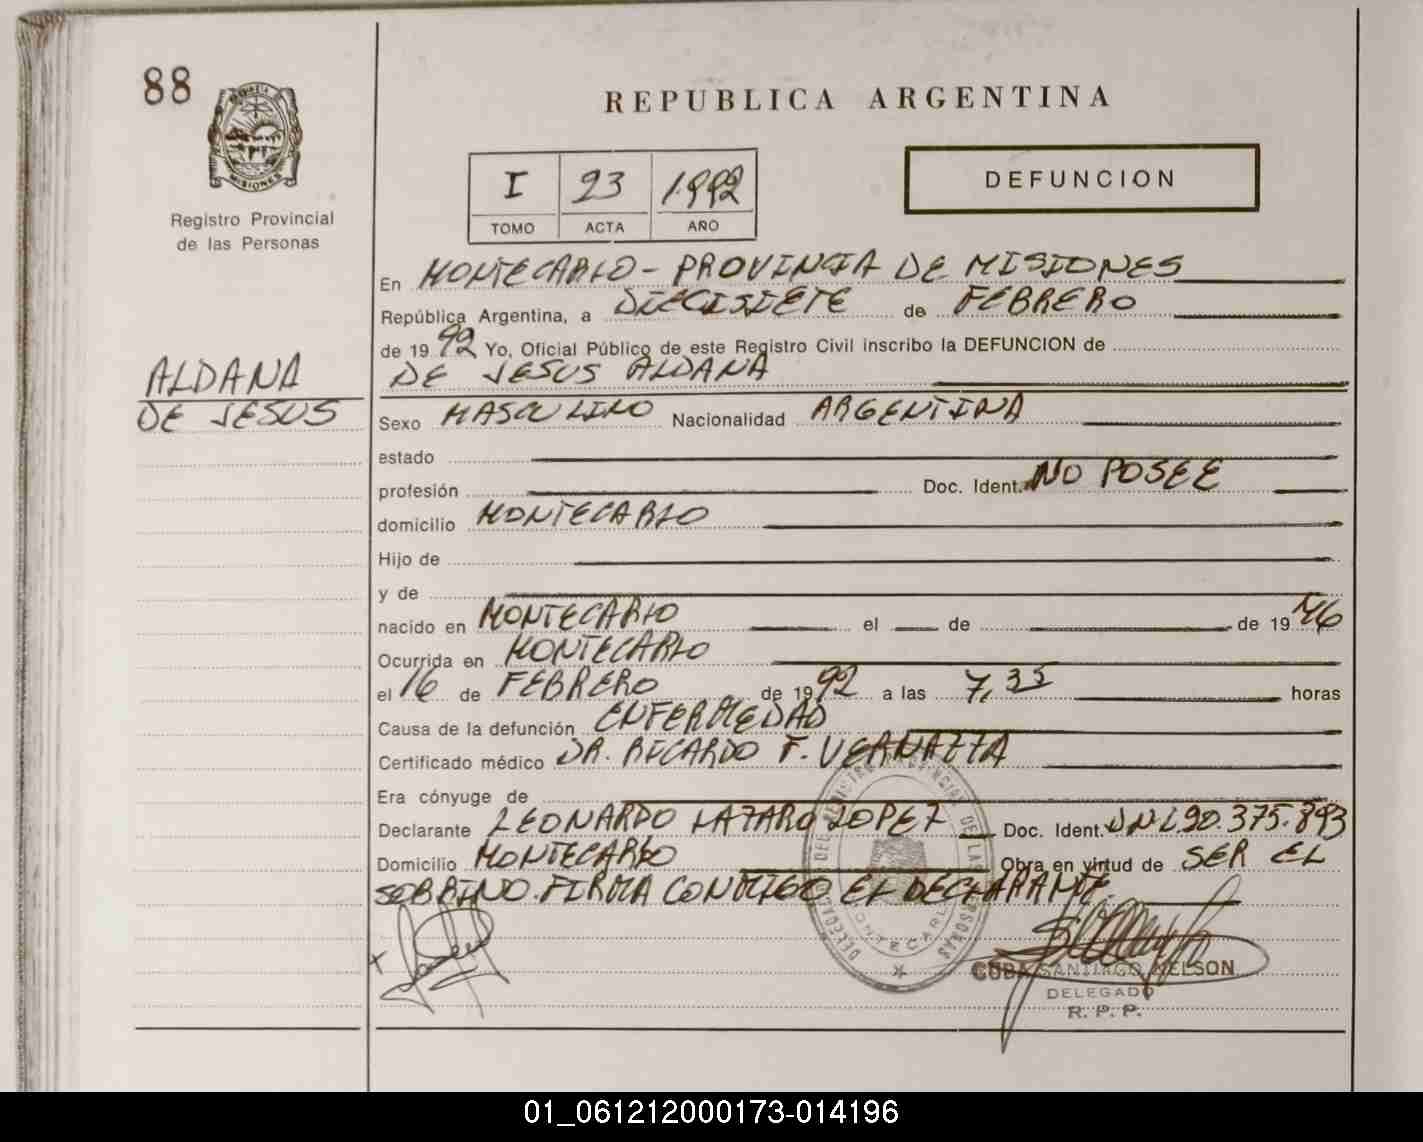 88
MISIONES
Registro Provincial
de las Personas
REPUBLICA ARGENTINA
I 23 1992
TOMO ACTA AÑO
DEFUNCION
ALDANA
DE JESUS
En MONTECARLO - PROVINCIA DE MISIONES
República Argentina, a DIECISIETE de FEBRERO
de 1992 Yo, Oficial Público de este Registro Civil inscribo la DEFUNCION de
DE JESUS ALDANA
Sexo MASCULINO Nacionalidad ARGENTINA
estado
profesión Doc. Ident. NO POSEE
domicilio MONTECARLO
Hijo de
y de
nacido en MONTECARLO el de de 19
Ocurrida en MONTECARLO
el 16 de FEBRERO de 1992 a las 7,35 horas
Causa de la defunción ENFERMEDAD
Certificado médico DR. RICARDO F. VERNAZZA
Era cónyuge de
Declarante LEONARDO LAZARO LOPEZ Doc. Ident. DNI. 20.375.893
Domicilio MONTECARLO Obra en virtud de SER EL
SOBRINO. FIRMA CONMIGO EL DECLARANTE
MONTECARLO
CUBA SANTIAGO NELSON
DELEGADO
R. P. P.
01_061212000173-014196